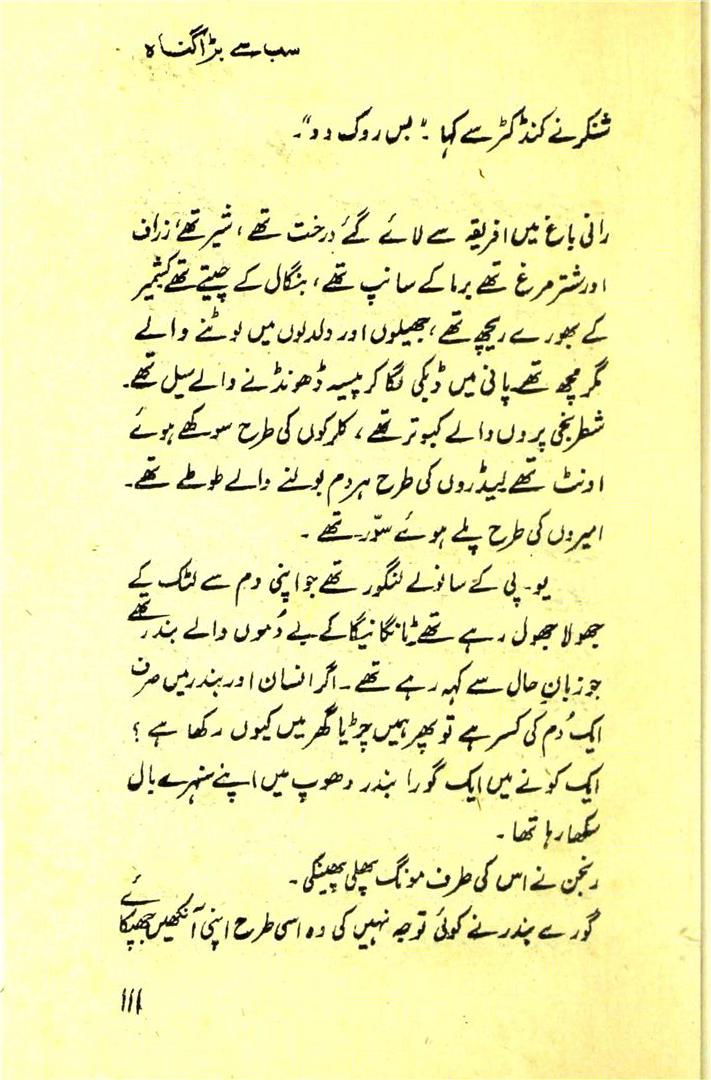 سب سے بڑا گناہ
شنکر نے کنڈکٹر سے کہا۔ "بس روک دو"۔
رانی باغ میں افریقہ سے لائے گئے درخت تھے، شیر تھے، زراف
اور شتر مرغ تھے برما کے سانپ تھے، بنگال کے چیتے تھے کشمیر
کے بھورے ریچھ تھے، جھیلوں اور دلدلوں میں لوٹنے والے
مگر مچھ تھے۔ پانی میں ڈبکی لگا کر پیسہ ڈھونڈنے والے سیل تھے۔
شطرنجی پروں والے کبوتر تھے، کلرکوں کی طرح سوکھے ہوئے
اونٹ تھے لیڈروں کی طرح ہردم بولنے والے طوطے تھے۔
امیروں کی طرح پلے ہوئے سوّر تھے۔
یو۔ پی کے سانولے لنگور تھے جو اپنی دم سے لٹک کے
جھولا جھول رہے تھے۔ ٹانگانیکا کے بے دُموں والے بندر تھے
جو زبانِ حال سے کہہ رہے تھے۔ اگر انسان اور بندر میں صرف
ایک دُم کی کسر ہے تو پھر ہمیں چڑیا گھر میں کیوں رکھا ہے؟
ایک کونے میں ایک گورا بندر دھوپ میں اپنے سنہرے بال
سکھا رہا تھا۔
رنجن نے اس کی طرف مونگ پھلی پھینکی۔
گورے بندر نے کوئی توجہ نہیں کی وہ اسی طرح اپنی آنکھیں جھپکائے
۱۱۱